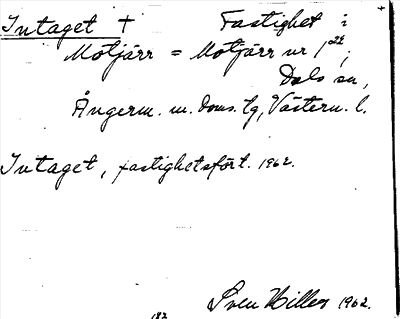 Intaget † Fastighet i
Motjärr = Motjärr nr 1²²,
Dals sn,
Ångerm. m. doms. tg, Västern. l.
Intaget, fastighetsfört. 1962.
Sven Hiller 1962.
182